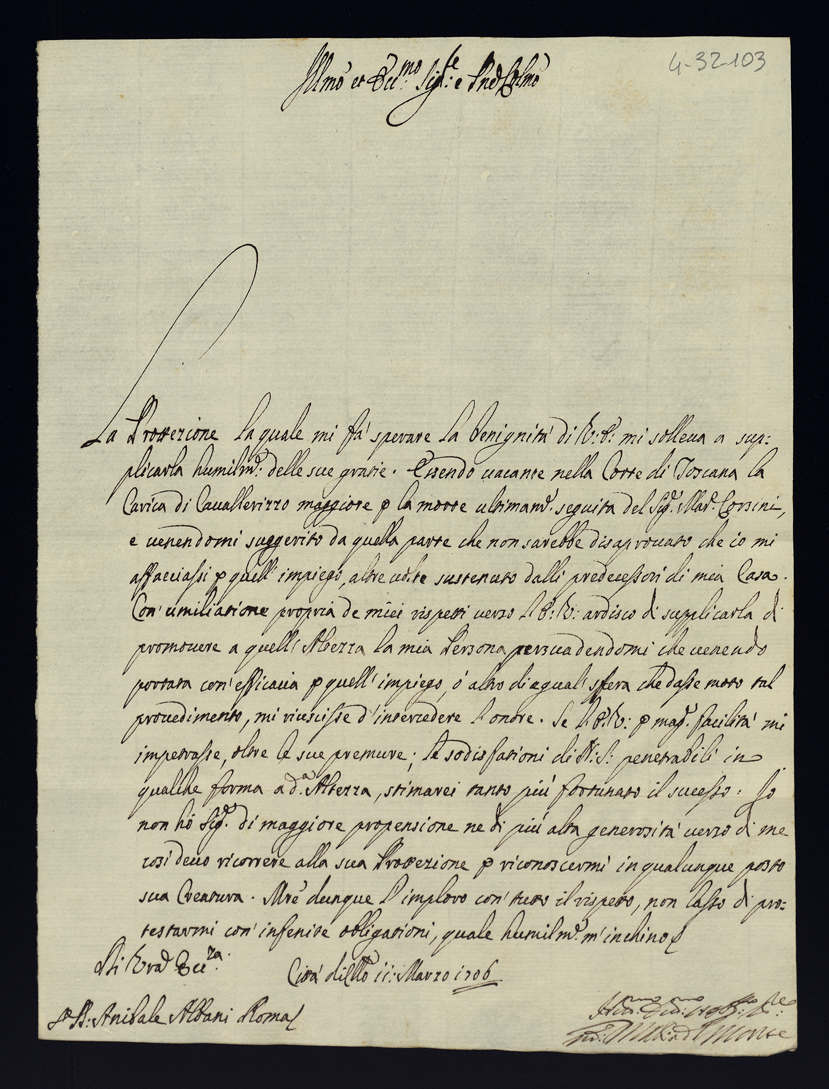 4-32-103
Illmo et Ecc.mo Sig.re e Pne Colmo
La Protezione la quale mi fà sperare la benignità di V: E: mi solleva a sup:
plicarla humilm.e: delle sue grazie. Essendo vacante nella Corte di Toscana la
Carica di Cavallerizzo maggiore p la morte ultimam.e seguita del Sig.r Mar.e Corsini,
e venendomi suggerito da quella parte che non sarebbe disaprovato che io mi
affacciassi p quell'impiego, altre volte sustenuto dalli predecessori di mia Casa.
Con' umiliatione propria de miei rispetti verso l'E: V: ardisco di supplicarla di
promovere a quell'Altezza la mia Persona persuadendomi che venendo
portata con'efficacia p quell'impiego, ó altro di egual'sfera che dasse moto tal
provedimento, mi riuscisse d'intercedere l'onore. Se l'E: V: p mag.r facilità mi
impetrasse, oltre le sue premure; le sodisfationi di N: S: penetrabili in
qualche forma a d.a Altezza, stimarei tanto più fortunato il sucesso. Io
non hò Sig.re di maggiore propensione ne di più alta generosità verso di me
così devo ricorrere alla sua Protezione p riconoscermi in qualunque posto
sua Creatura. Mre dunque l'imploro con'tutto il rispetto, non lasso di pro:
testarmi con'infenite obligationi, quale humilm.e m'inchino
Di Vra Ecc.za
Città di 11: Marzo 1706
Anibale Albani Roma